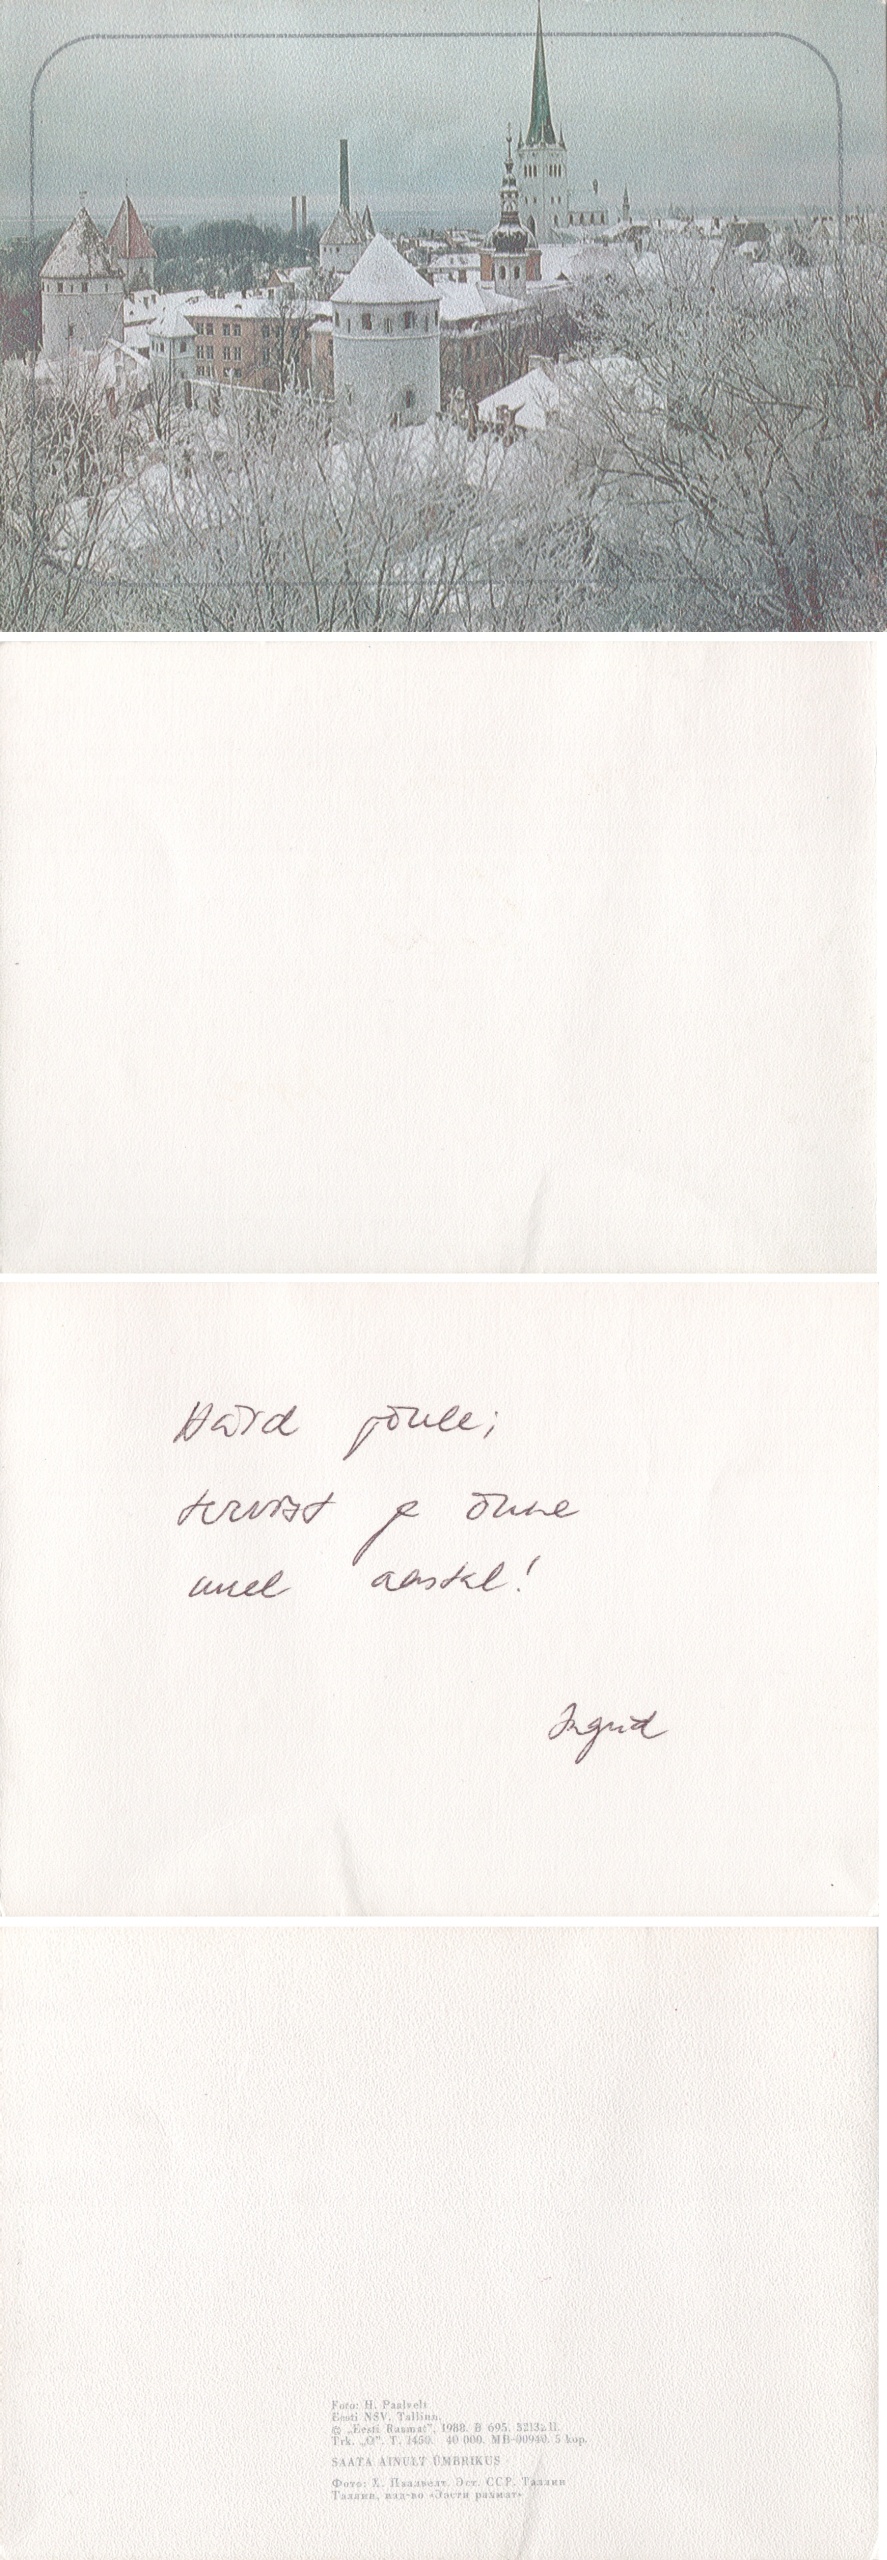 Häid jõule;
tervist ja õnne
uuel aastal!
Ingrid
Foto: H. Paalvelt
Eesti NSV, Tallinn.
© „Eesti Raamat”, 1988. B 695.
Trk. „O”. T. 2450. 40 000. MB-00940. 5 kop.
SAATA AINULT ÜMBRIKUS
Фото: Х. Паалвелт. Эст. ССР. Таллин
Таллин, изд-во «Ээсти раамат»